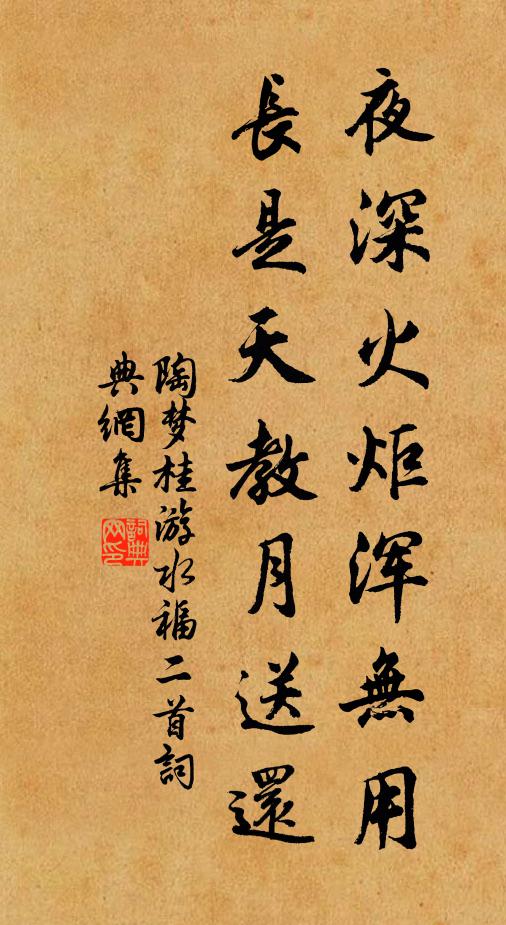 夜深火炬浑無用
長是天教月送還
陶梦桂游水福二首詞
典網集
詞典網印